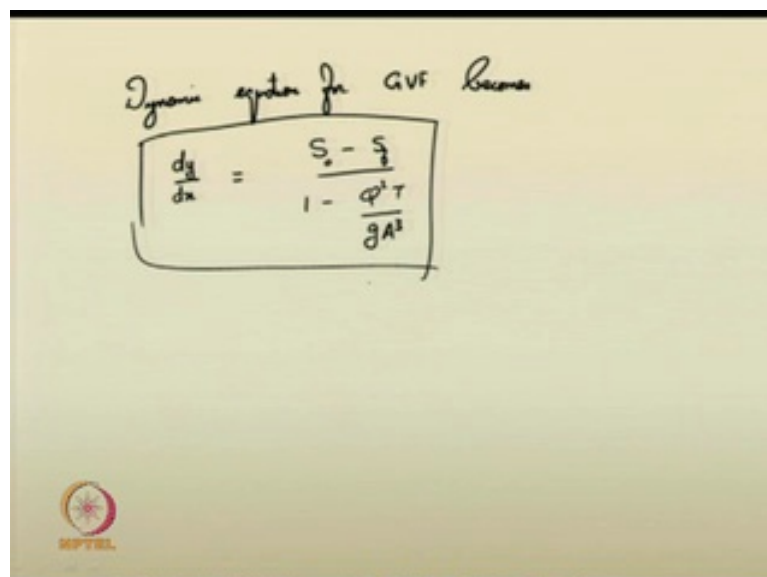 Dynamic equation for GVF becomes
dy/dx = (S₀ - S_f) / (1 - Q²T/gA³)
NPTEL